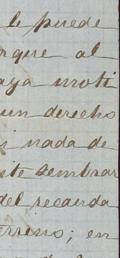 le puede
rque al
aya moti
un derecho
i nada de
ste sembrar
del recauda
erreno; en